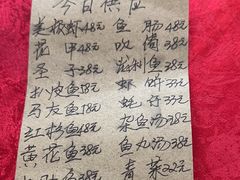 今日供应
美极虾48元 鱼肠48元
花甲48元 吹筒38元
圣子38元 剥利鱼38元
扒皮鱼58元 虾饼33元
马友鱼58元 蚝饼33元
红杉鱼48元 杂鱼汤38元
黄花鱼38元 鱼丸汤38元
青菜22元